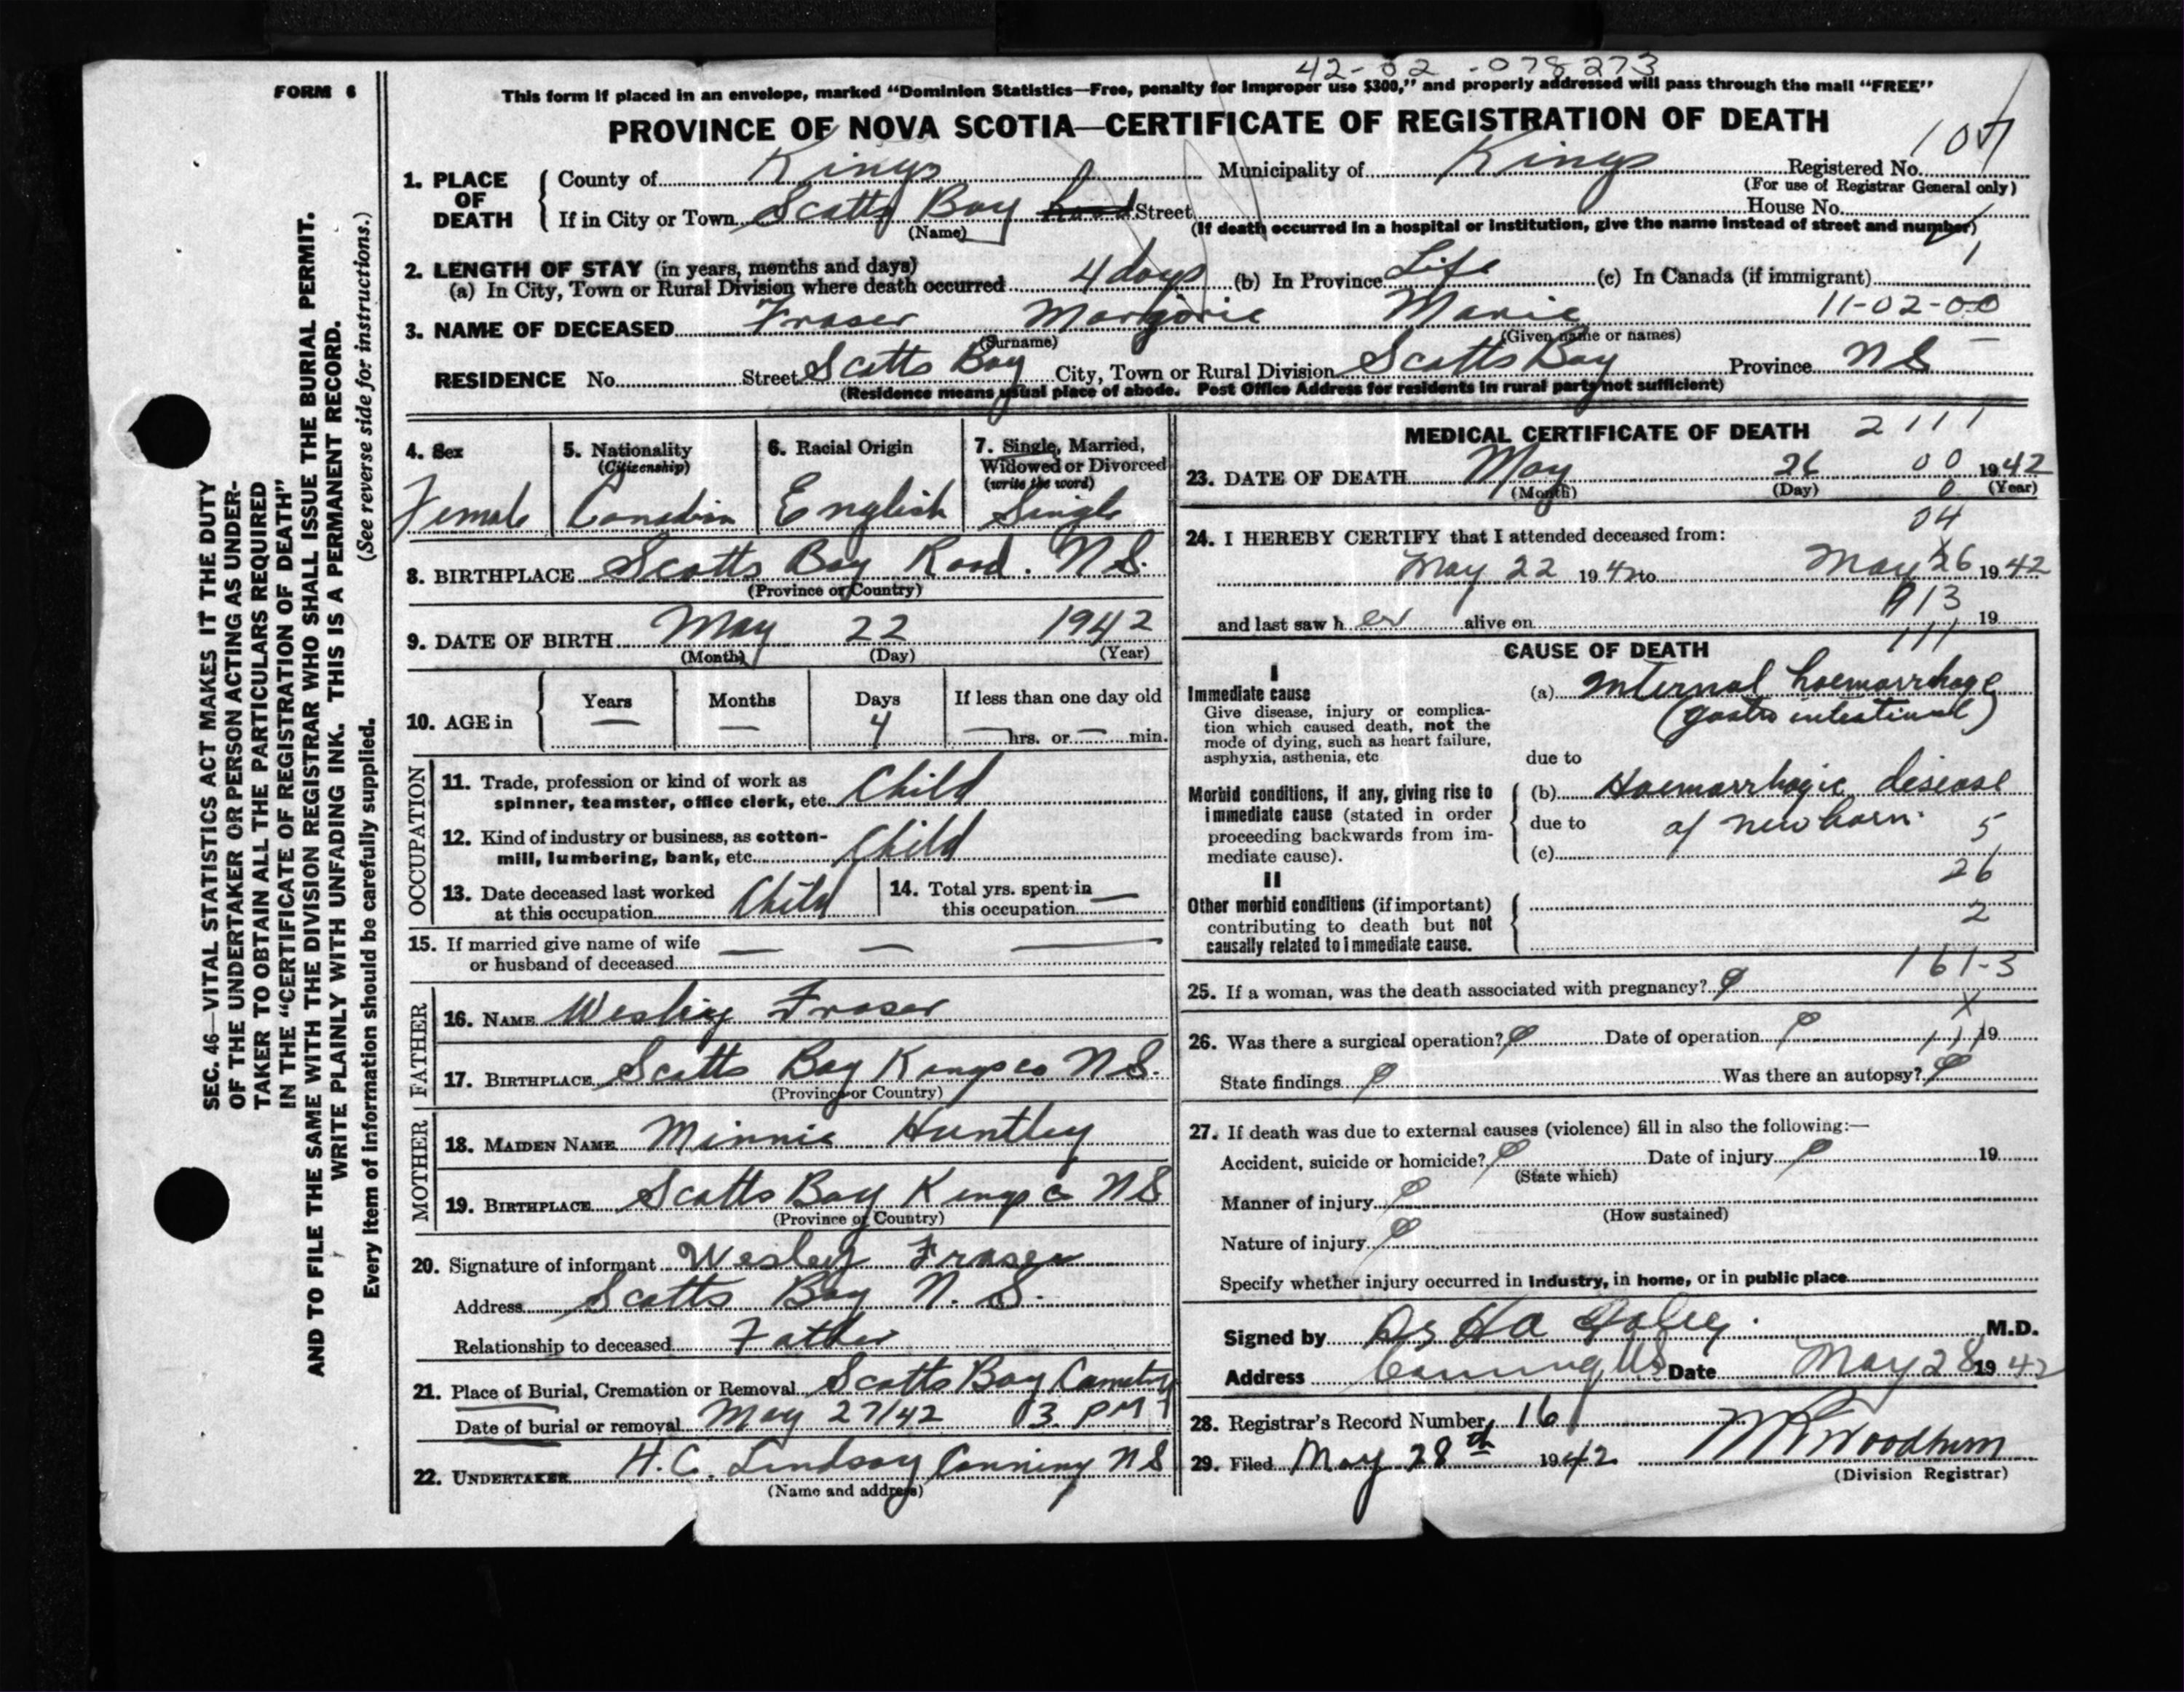 42-02-078273
FORM 6
This form if placed in an envelope, marked "Dominion Statistics—Free, penalty for improper use $300," and properly addressed will pass through the mail "FREE"
PROVINCE OF NOVA SCOTIA—CERTIFICATE OF REGISTRATION OF DEATH
1. PLACE OF DEATH
County of Kings Municipality of Kings Registered No.
(For use of Registrar General only)
If in City or Town Scotts Bay Street House No.
(Name) (If death occurred in a hospital or institution, give the name instead of street and number)
2. LENGTH OF STAY (in years, months and days)
(a) In City, Town or Rural Division where death occurred 4 days (b) In Province Life (c) In Canada (if immigrant) 1
3. NAME OF DECEASED Fraser Marjorie Marie 11-02-00
(Surname) (Given name or names)
RESIDENCE No. Street Scotts Bay City, Town or Rural Division Scotts Bay Province N S
(Residence means usual place of abode. Post Office Address for residents in rural parts not sufficient)
4. Sex
Female
5. Nationality
(Citizenship)
Canadian
6. Racial Origin
English
7. Single, Married,
Widowed or Divorced
(write the word)
Single
8. BIRTHPLACE Scotts Bay Road. N.S.
(Province or Country)
9. DATE OF BIRTH May 22 1942
(Month) (Day) (Year)
10. AGE in
Years Months Days If less than one day old
— — 4 — hrs. or — min.
OCCUPATION
11. Trade, profession or kind of work as
spinner, teamster, office clerk, etc. Child
12. Kind of industry or business, as cotton-
mill, lumbering, bank, etc. Child
13. Date deceased last worked
at this occupation Child
14. Total yrs. spent in
this occupation —
15. If married give name of wife — — —
or husband of deceased
FATHER
16. NAME Wesley Fraser
17. BIRTHPLACE Scotts Bay Kings co N.S.
(Province or Country)
MOTHER
18. MAIDEN NAME Minnie Huntley
19. BIRTHPLACE Scotts Bay Kings co N S
(Province or Country)
20. Signature of informant Wesley Fraser
Address Scotts Bay N. S.
Relationship to deceased Father
21. Place of Burial, Cremation or Removal Scotts Bay Cemetery
Date of burial or removal May 27/42 3 PM
22. UNDERTAKER H. C. Lindsay Canning N S
(Name and address)
MEDICAL CERTIFICATE OF DEATH 2111
23. DATE OF DEATH May 26 00 1942
(Month) (Day) 0 (Year)
04
24. I HEREBY CERTIFY that I attended deceased from:
May 22 1942 to May 26 1942
913
and last saw h er alive on 19
111
CAUSE OF DEATH
I
Immediate cause
Give disease, injury or complica-
tion which caused death, not the
mode of dying, such as heart failure,
asphyxia, asthenia, etc
(a) Internal haemorrhage
(gastro intestinal)
due to
Morbid conditions, if any, giving rise to
immediate cause (stated in order
proceeding backwards from im-
mediate cause).
(b) Haemorrhagic disease
due to of newborn.
5
(c)
26
II
Other morbid conditions (if important)
contributing to death but not
causally related to immediate cause.
2
161-3
25. If a woman, was the death associated with pregnancy?
X
26. Was there a surgical operation? Date of operation 19
State findings Was there an autopsy?
27. If death was due to external causes (violence) fill in also the following:—
Accident, suicide or homicide? Date of injury 19
(State which)
Manner of injury
(How sustained)
Nature of injury
Specify whether injury occurred in Industry, in home, or in public place
Signed by Dr H A M.D.
Address Canning NS Date May 28 1942
28. Registrar's Record Number 16
29. Filed May 28th 1942
(Division Registrar)
SEC. 46—VITAL STATISTICS ACT MAKES IT THE DUTY
OF THE UNDERTAKER OR PERSON ACTING AS UNDER-
TAKER TO OBTAIN ALL THE PARTICULARS REQUIRED
IN THE "CERTIFICATE OF REGISTRATION OF DEATH"
AND TO FILE THE SAME WITH THE DIVISION REGISTRAR WHO SHALL ISSUE THE BURIAL PERMIT.
WRITE PLAINLY WITH UNFADING INK. THIS IS A PERMANENT RECORD.
Every item of information should be carefully supplied. (See reverse side for instructions.)